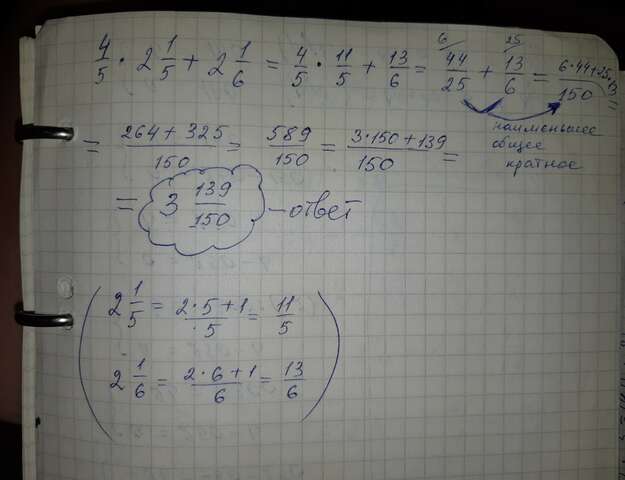 4/5 · 2 1/5 + 2 1/6 = 4/5 · 11/5 + 13/6 = 6/ 44/25 + 25/ 13/6 = (6·44+25·13)/150 =
наименьшее
общее
кратное
= (264 + 325)/150 = 589/150 = (3·150+139)/150 =
= 3 139/150 – ответ
2 1/5 = (2·5+1)/5 = 11/5
2 1/6 = (2·6+1)/6 = 13/6